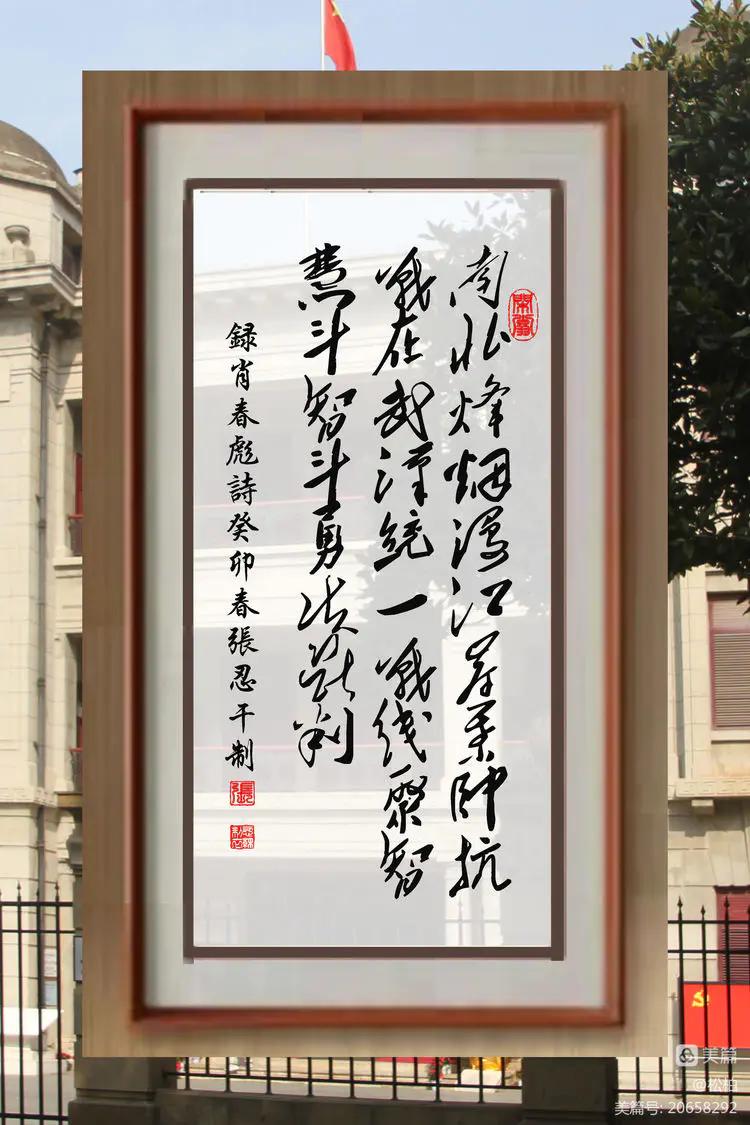 南北烽烟漫江岸葉帥抗
戰在武漢統一戰线聚智
慧斗智斗勇决判
録肖春彪詩癸卯春張忍千制
張
美篇
@松柏
美篇号: 20658292